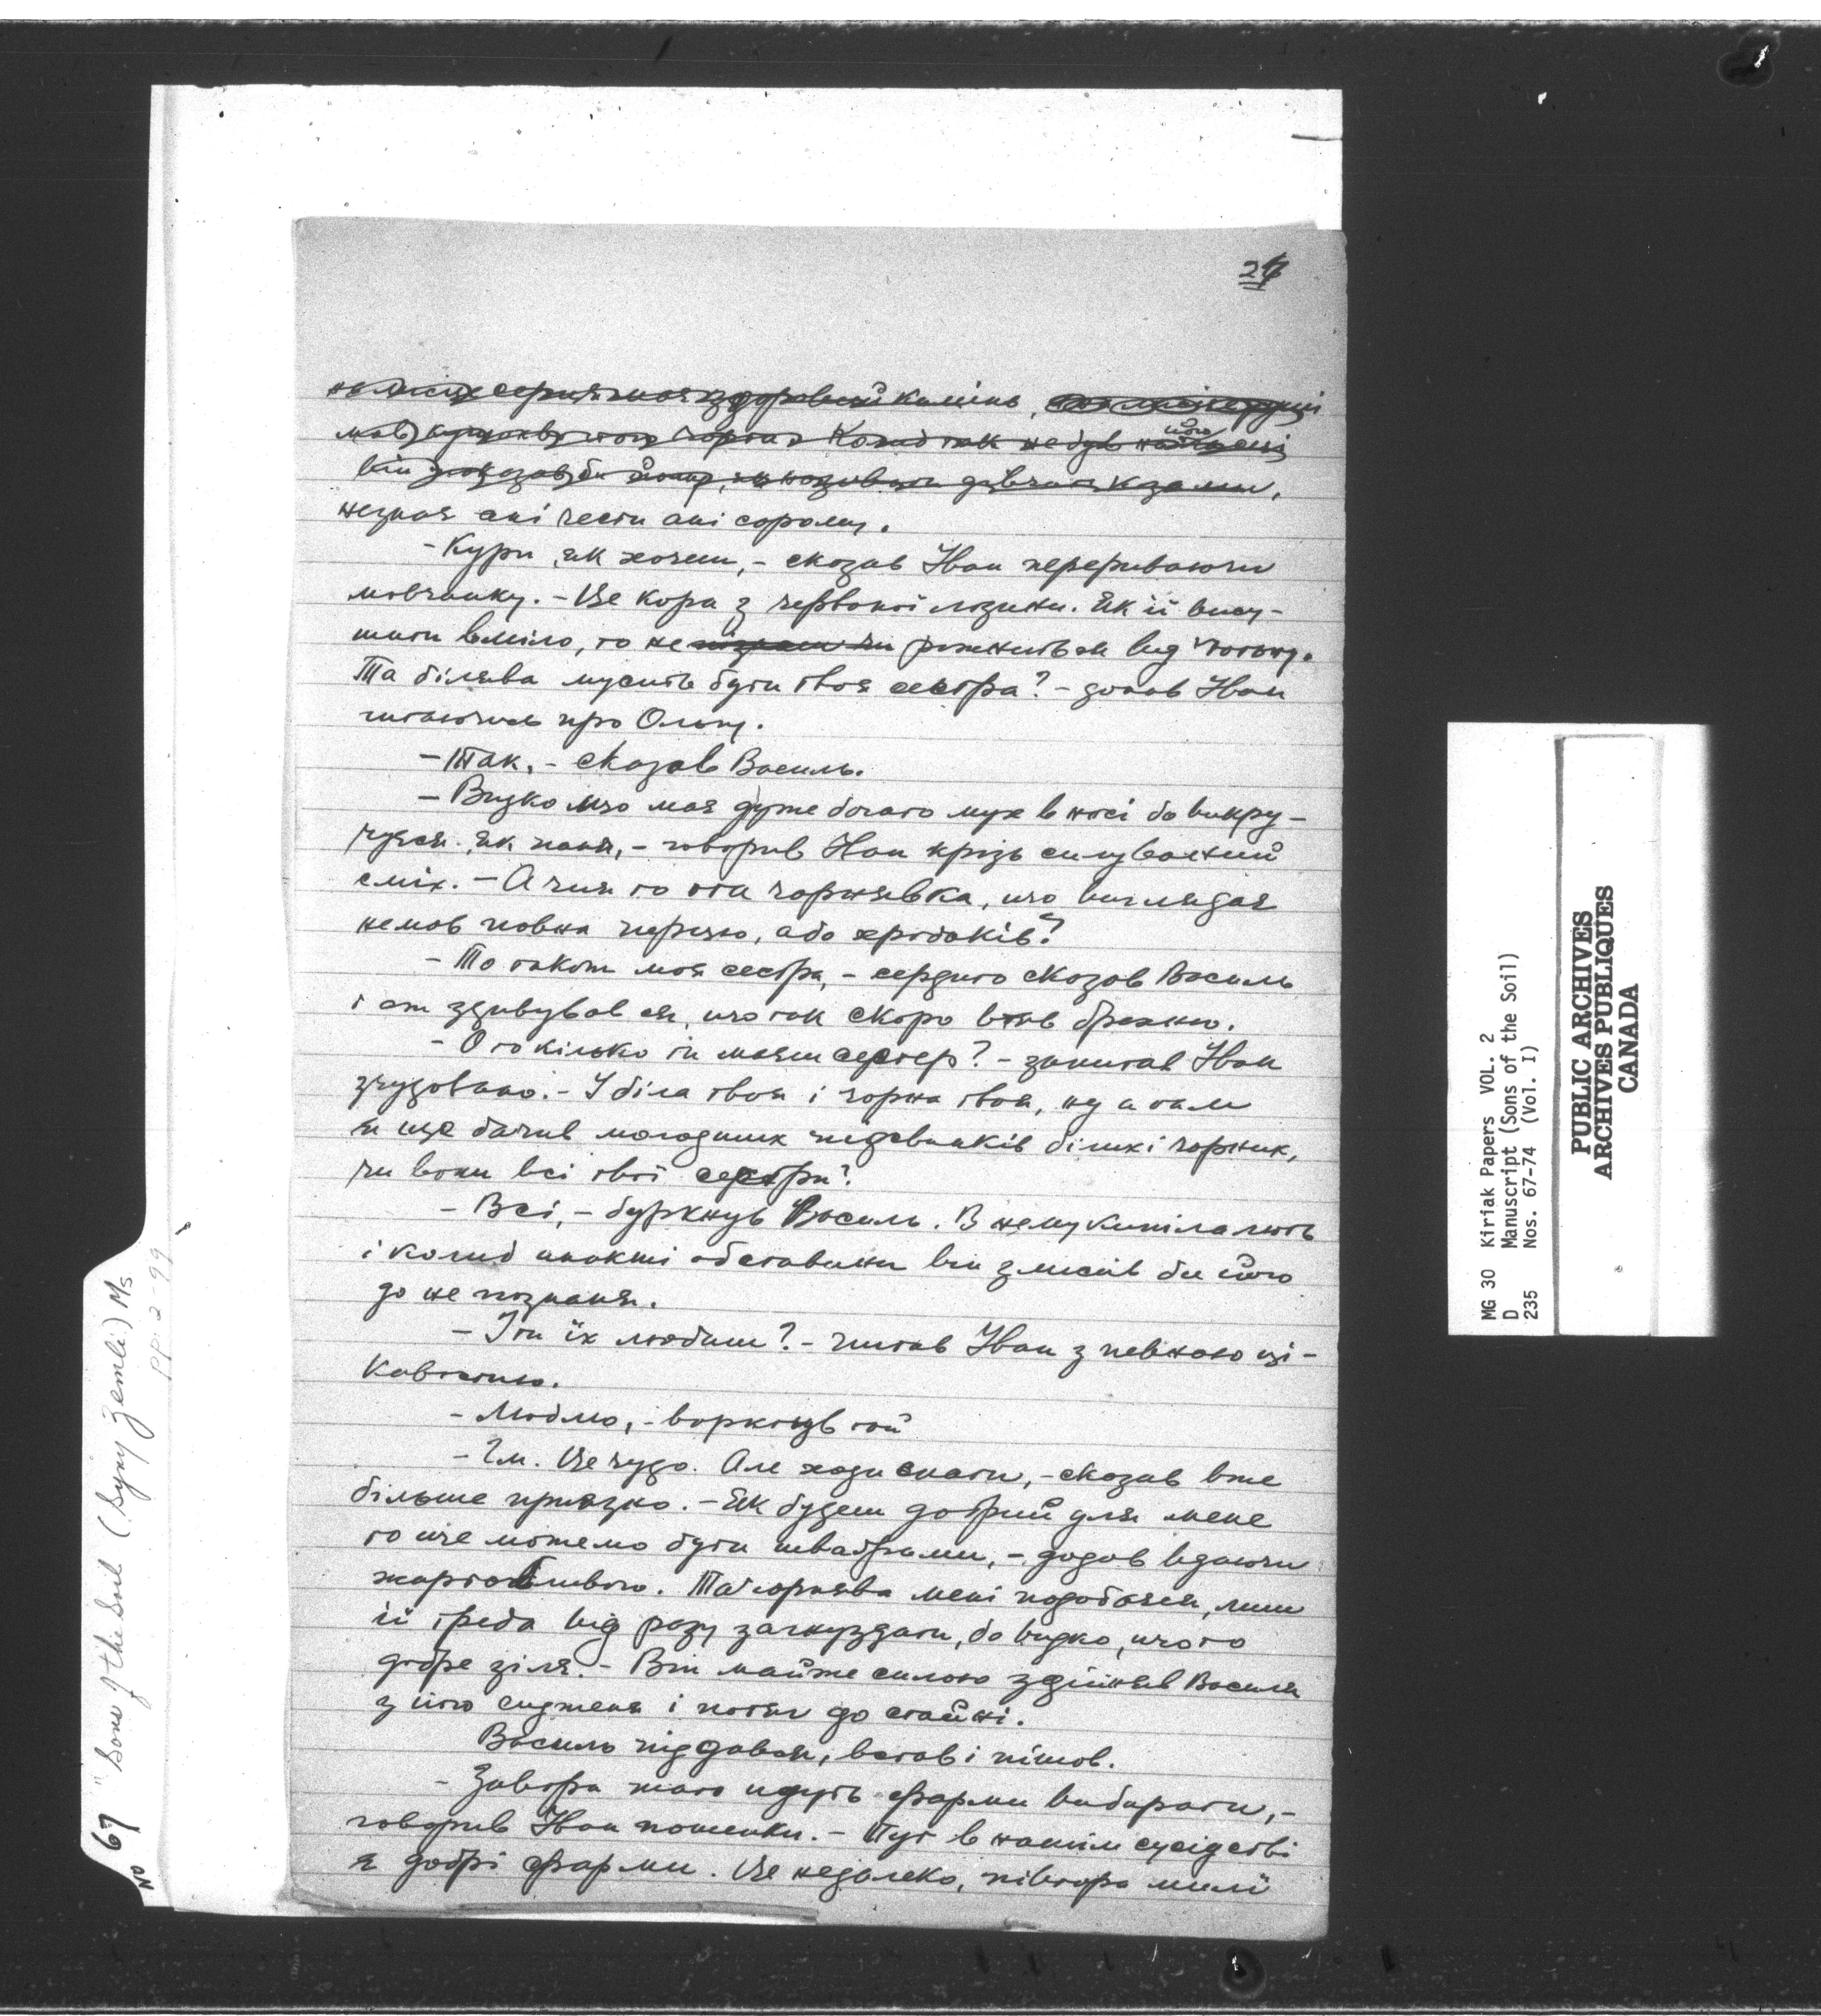 27
незная ані чести ані сорому.
- Кури як хочеш, - сказав Іван перериваючи
мовчанку. - Це кора з червоної лозини. Як її вису-
шити вміло, то не ріжниться від тютюну.
Та білява мусить бути твоя сестра? - додав Іван
питаючись про Ольгу.
- Так, - сказав Василь.
- Видко що має дуже богато мух в носі бо викру-
чуєся як паня, - говорив Іван крізь силуваний
сміх. - А чия то ота чорнявка, що виглядає
немов повна перцю, або хробаків?
- То також моя сестра, - сердито сказав Василь
і аж здивувався, що так скоро втяв брехню.
- О то кілько ти маєш сестер? - запитав Іван
зчудовано. - І біла твоя і чорна твоя, ну а там
я ще бачив молодших підсвинків білих і чорних,
чи вони всі твої сестри?
- Всі, - буркнув Василь. В нему кипіла лють
і колиб инакші обставини він змісив би його
до не познаня.
- І ти їх любиш? - питав Іван з певною ці-
кавостию.
- Люблю, - воркнув той
- Гм. Це чудо. Але ходи спати, - сказав вже
більше приязно. - Як будеш добрий для мене
то ще можемо бути шваграми, - додав вдаючи
жартобливого. Та чорнява мені подобаєся, лиш
її треба від разу загнуздати, бо видко, що то
добре зіля. - Він майже силою здіймив Василя
з його сидженя і потяг до стайні.
Василь піддався, встав і пішов.
- Завтра тато идуть фарми вибирати, -
говорив Іван пошепки. - Тут в нашім сусідстві
є добрі фарми. Це недалеко, півтора милї
No 67 "Sons of the Soil (Syny Zemli) Ms
PP. 2-99
MG 30 Kiriak Papers VOL. 2
D Manuscript (Sons of the Soil)
235 Nos. 67-74 (Vol. I)
PUBLIC ARCHIVES
ARCHIVES PUBLIQUES
CANADA